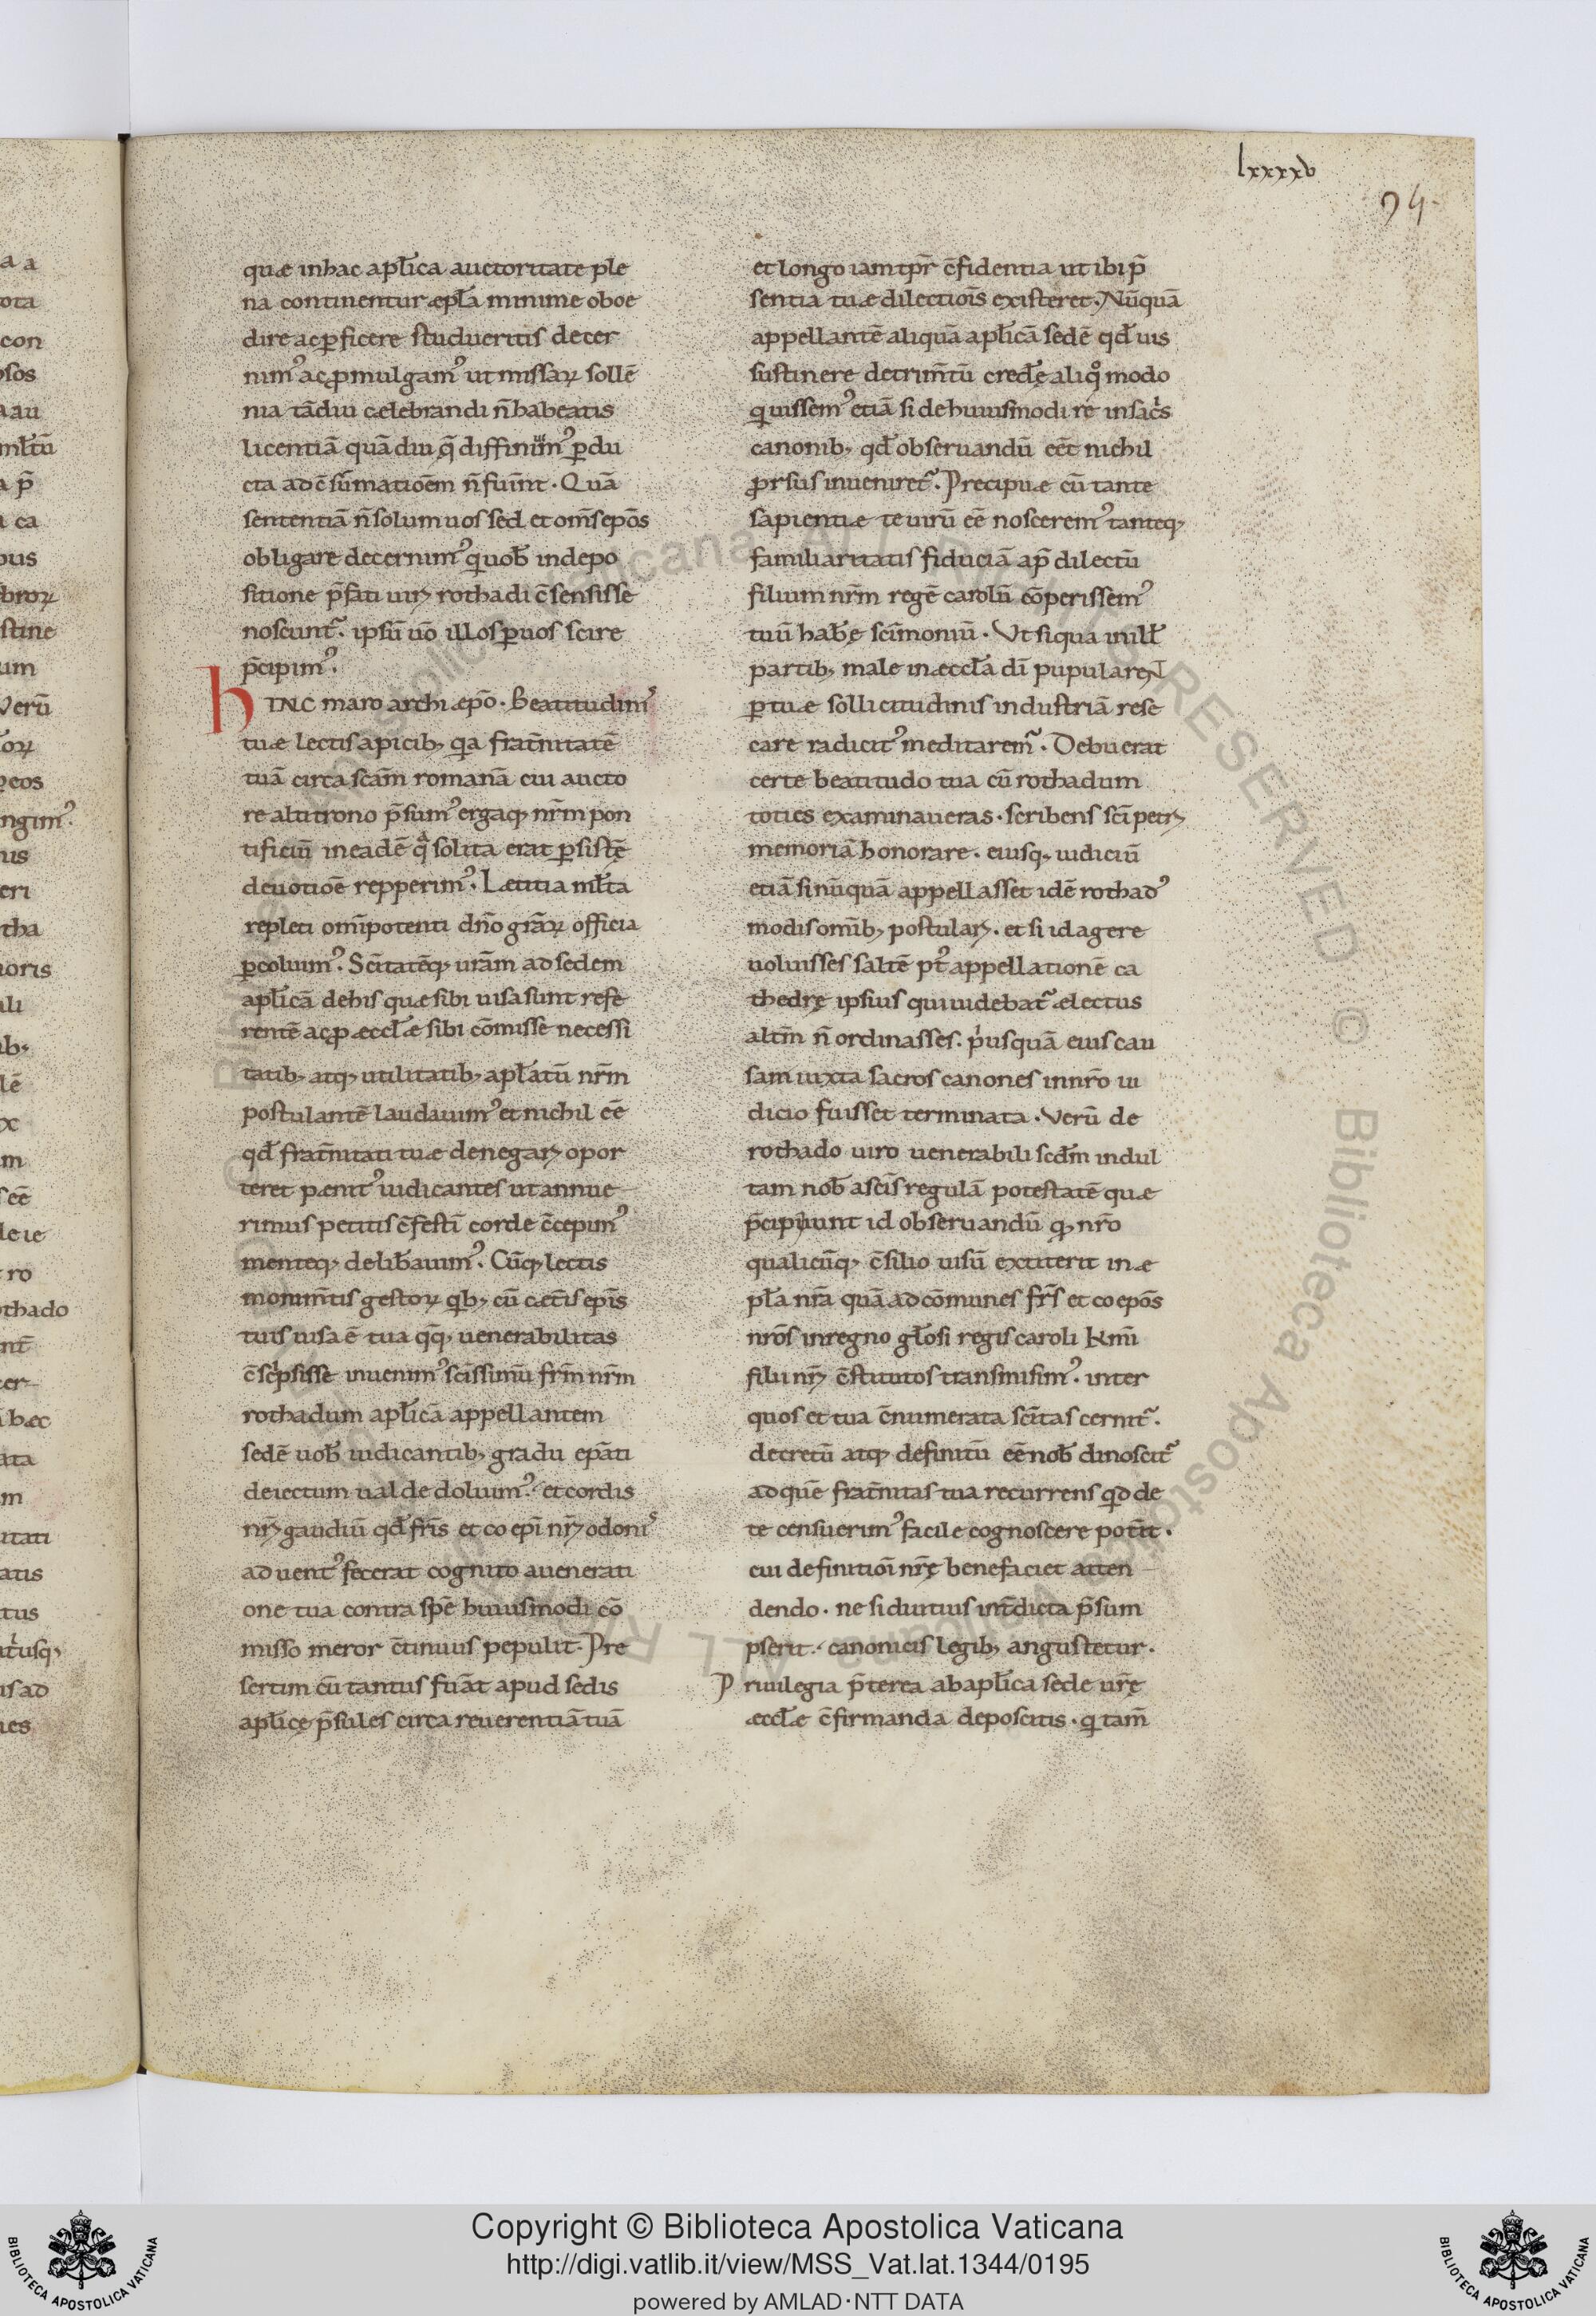 lxxxxv
94.
quæ inhac apłica auctoritate ple
na continentur æpła minime oboe
dire acꝑficere studueritis decer
nimꝰ acꝓmulgamꝰ ut missaꝝ sollē
nia tādiu cælebrandi n̄ habeatis
licentiā quā diu q̄ diffinimꝰ ꝑdu
cta ad c̄sūmatioēm n̄ fuīnt. Quā
sententiā n̄ solum uos sed et om̄s ep̄os
obligare decernimꝰ qͥ uob̄ indepo
sitione p̄fati uiri rothadi c̄sensisse
noscunt᷑. ipsū uō illos ꝑ uos scire
p̄cipimꝰ.
hINC maro archiæpō. Beatitudinꝭ
tuæ lectis apicibꝫ qͥa frat̄nitatē
tuā circa scām romanā cui aucto
re altitrono p̄sumꝰ ergaqꝫ nr̄m pon
tificiū ineadē qͣ solita erat ꝑsistę̄
deuotioē repperimꝰ. Lætitia młta
repleti om̄ipotenti dn̄o grāꝝ officia
ꝑcoluimꝰ. Sc̄itatēqꝫ urām ad sedem
apłicā dehis quæ sibi uisa sunt refe
rentē acꝓ æccłæ sibi cōmisse necessi
tatibꝫ atqꝫ utilitatibꝫ apłatū nr̄m
postulantē laudauimꝰ et nichil eē
qđ frat̄nitati tuæ denegari opor
teret pænitꝰ iudicantes ut annue
rimus petitis c̄festī corde c̄cepimꝰ
menteqꝫ delib̄auimꝰ. Cūqꝫ lectis
monim̄tis gestoꝝ qͥbꝫ cū cæt̄is ep̄is
tuis uisa ē tua qͦqꝫ uenerabilitas
c̄scͥpsisse inuenimꝰ sc̄issimū fr̄m nr̄m
rothadum apłicā appellantem
sedē uob̄ iudicantibꝫ gradu ep̄ati
deiectum ualde doluimꝰ. et cordis
nr̄i gaudiū qđ fr̄is et coep̄i nr̄i odonꝭ
aduentꝰ fecerat cognito auenerati
one tua contra spē huiusmodi cō
misso meror c̄tinuus pepulit. Pre
sertim cū tantus fuāt apud sedis
apłicę p̄sules circa reuerentiā tuā
et longo iam tp̄r c̄fidentia ut ibi p̄
sentia tuæ dilectiōis existeret. Nūquā
appellantē aliquā apłicā sedē qđuis
sustinere detrim̄tū credę̄ aliqͦ modo
qͥuissemꝰ etiā si de huiusmodi re insacͥs
canonibꝫ qđ obseruandū eēt nichil
ꝓrsus inueniret᷑. Precipuæ cū tante
sapientiæ te uirū eē nosceremꝰ tanteqꝫ
familiaritatis fiduciā ap̄ dilectū
filium nr̄m regē carolū cōperissemꝰ
tuū hab̄ę scīmoniū. Ut siqua inilł
partibꝫ male inæccła dī pupularent
ꝑ tuæ sollicitudinis industriā rese
care radicitꝰ meditarem᷑. Debuerat
certe beatitudo tua cū rothadum
toties examinaueras. scribens scī petri
memoriā honorare. eiusqꝫ iudiciū
etiā si nūquā appellasset idē rothadꝰ
modis om̄ibꝫ postulari. et si id agere
uoluisses saltē pt̄ appellationē ca
thedrę ipsius qui uidebat᷑ ælectus
altm̄ n̄ ordinasses. pͥusquā eius cau
sam iuxta sacros canones innr̄o iu
dicio fuisset terminata. Verū de
rothado uiro uenerabili scđm indul
tam nob̄ ascīs regulā potestatē quæ
p̄cipiunt id obseruandū qͦ nr̄o
qualicūqꝫ c̄silio uisū extiterit inæ
pła nr̄a quā ad cōmunes fr̄s et coep̄os
nr̄os inregno głosi regis caroli kmī
filii nr̄i c̄stitutos transmisimꝰ. inter
quos et tua c̄numerata sc̄itas cernit᷑.
decretū atqꝫ definitū eē nob̄ dinoscit᷑
ad quē frat̄nitas tua recurrens qͥd de
te censuerimꝰ facile cognoscere pot̄it.
cui definitiōi nr̄ę benefaciet atten
dendo. ne si diutius int̄dicta p̄sum
pserit. canonicis legibꝫ angustetur.
Priuilegia p̄terea abapłica sede ur̄ę
æccłæ c̄firmanda deposcitis. qͥ tam̄
Copyright © Biblioteca Apostolica Vaticana
http://digi.vatlib.it/view/MSS_Vat.lat.1344/0195
powered by AMLAD·NTT DATA